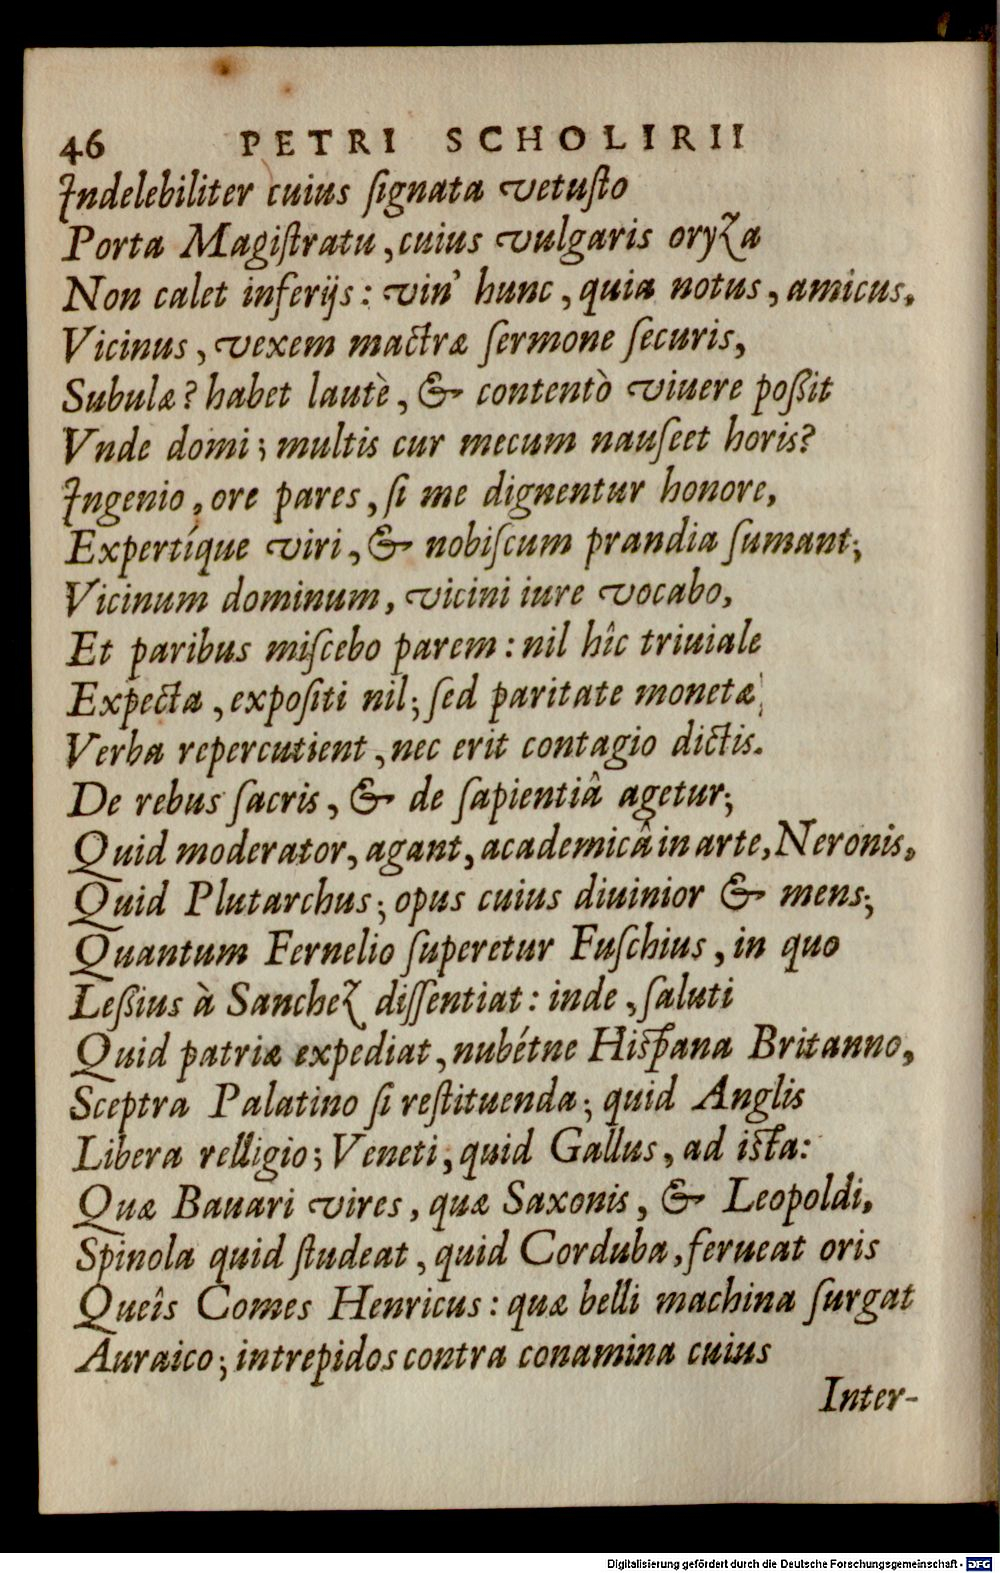 46 PETRI SCHOLIRII
Indelebiliter cuius ſignata vetuſto
Porta Magiſtratu, cuius vulgaris oryza
Non calet inferijs: vin' hunc, quia notus, amicus,
Vicinus, vexem mactræ ſermone ſecuris,
Subulæ? habet lautè, & contentò viuere poßit
Vnde domi; multis cur mecum nauſeet horis?
Ingenio, ore pares, ſi me dignentur honore,
Expertíque viri, & nobiſcum prandia ſumant;
Vicinum dominum, vicini iure vocabo,
Et paribus miſcebo parem: nil hîc triuiale
Expecta, expoſiti nil; ſed paritate monetæ
Verba repercutient, nec erit contagio dictis.
De rebus ſacris, & de ſapientiâ agetur;
Quid moderator, agant, academicâ in arte, Neronis,
Quid Plutarchus; opus cuius diuinior & mens;
Quantum Fernelio ſuperetur Fuſchius, in quo
Leßius à Sanchez diſſentiat: inde, ſaluti
Quid patriæ expediat, nubétne Hiſpana Britanno,
Sceptra Palatino ſi reſtituenda; quid Anglis
Libera relligio; Veneti, quid Gallus, ad iſta:
Quæ Bauari vires, quæ Saxonis, & Leopoldi,
Spinola quid ſtudeat, quid Corduba, ferueat oris
Queîs Comes Henricus: quæ belli machina ſurgat
Auraico; intrepidos contra conamina cuius
Inter-
Digitalisierung gefördert durch die Deutsche Forschungsgemeinschaft - DFG